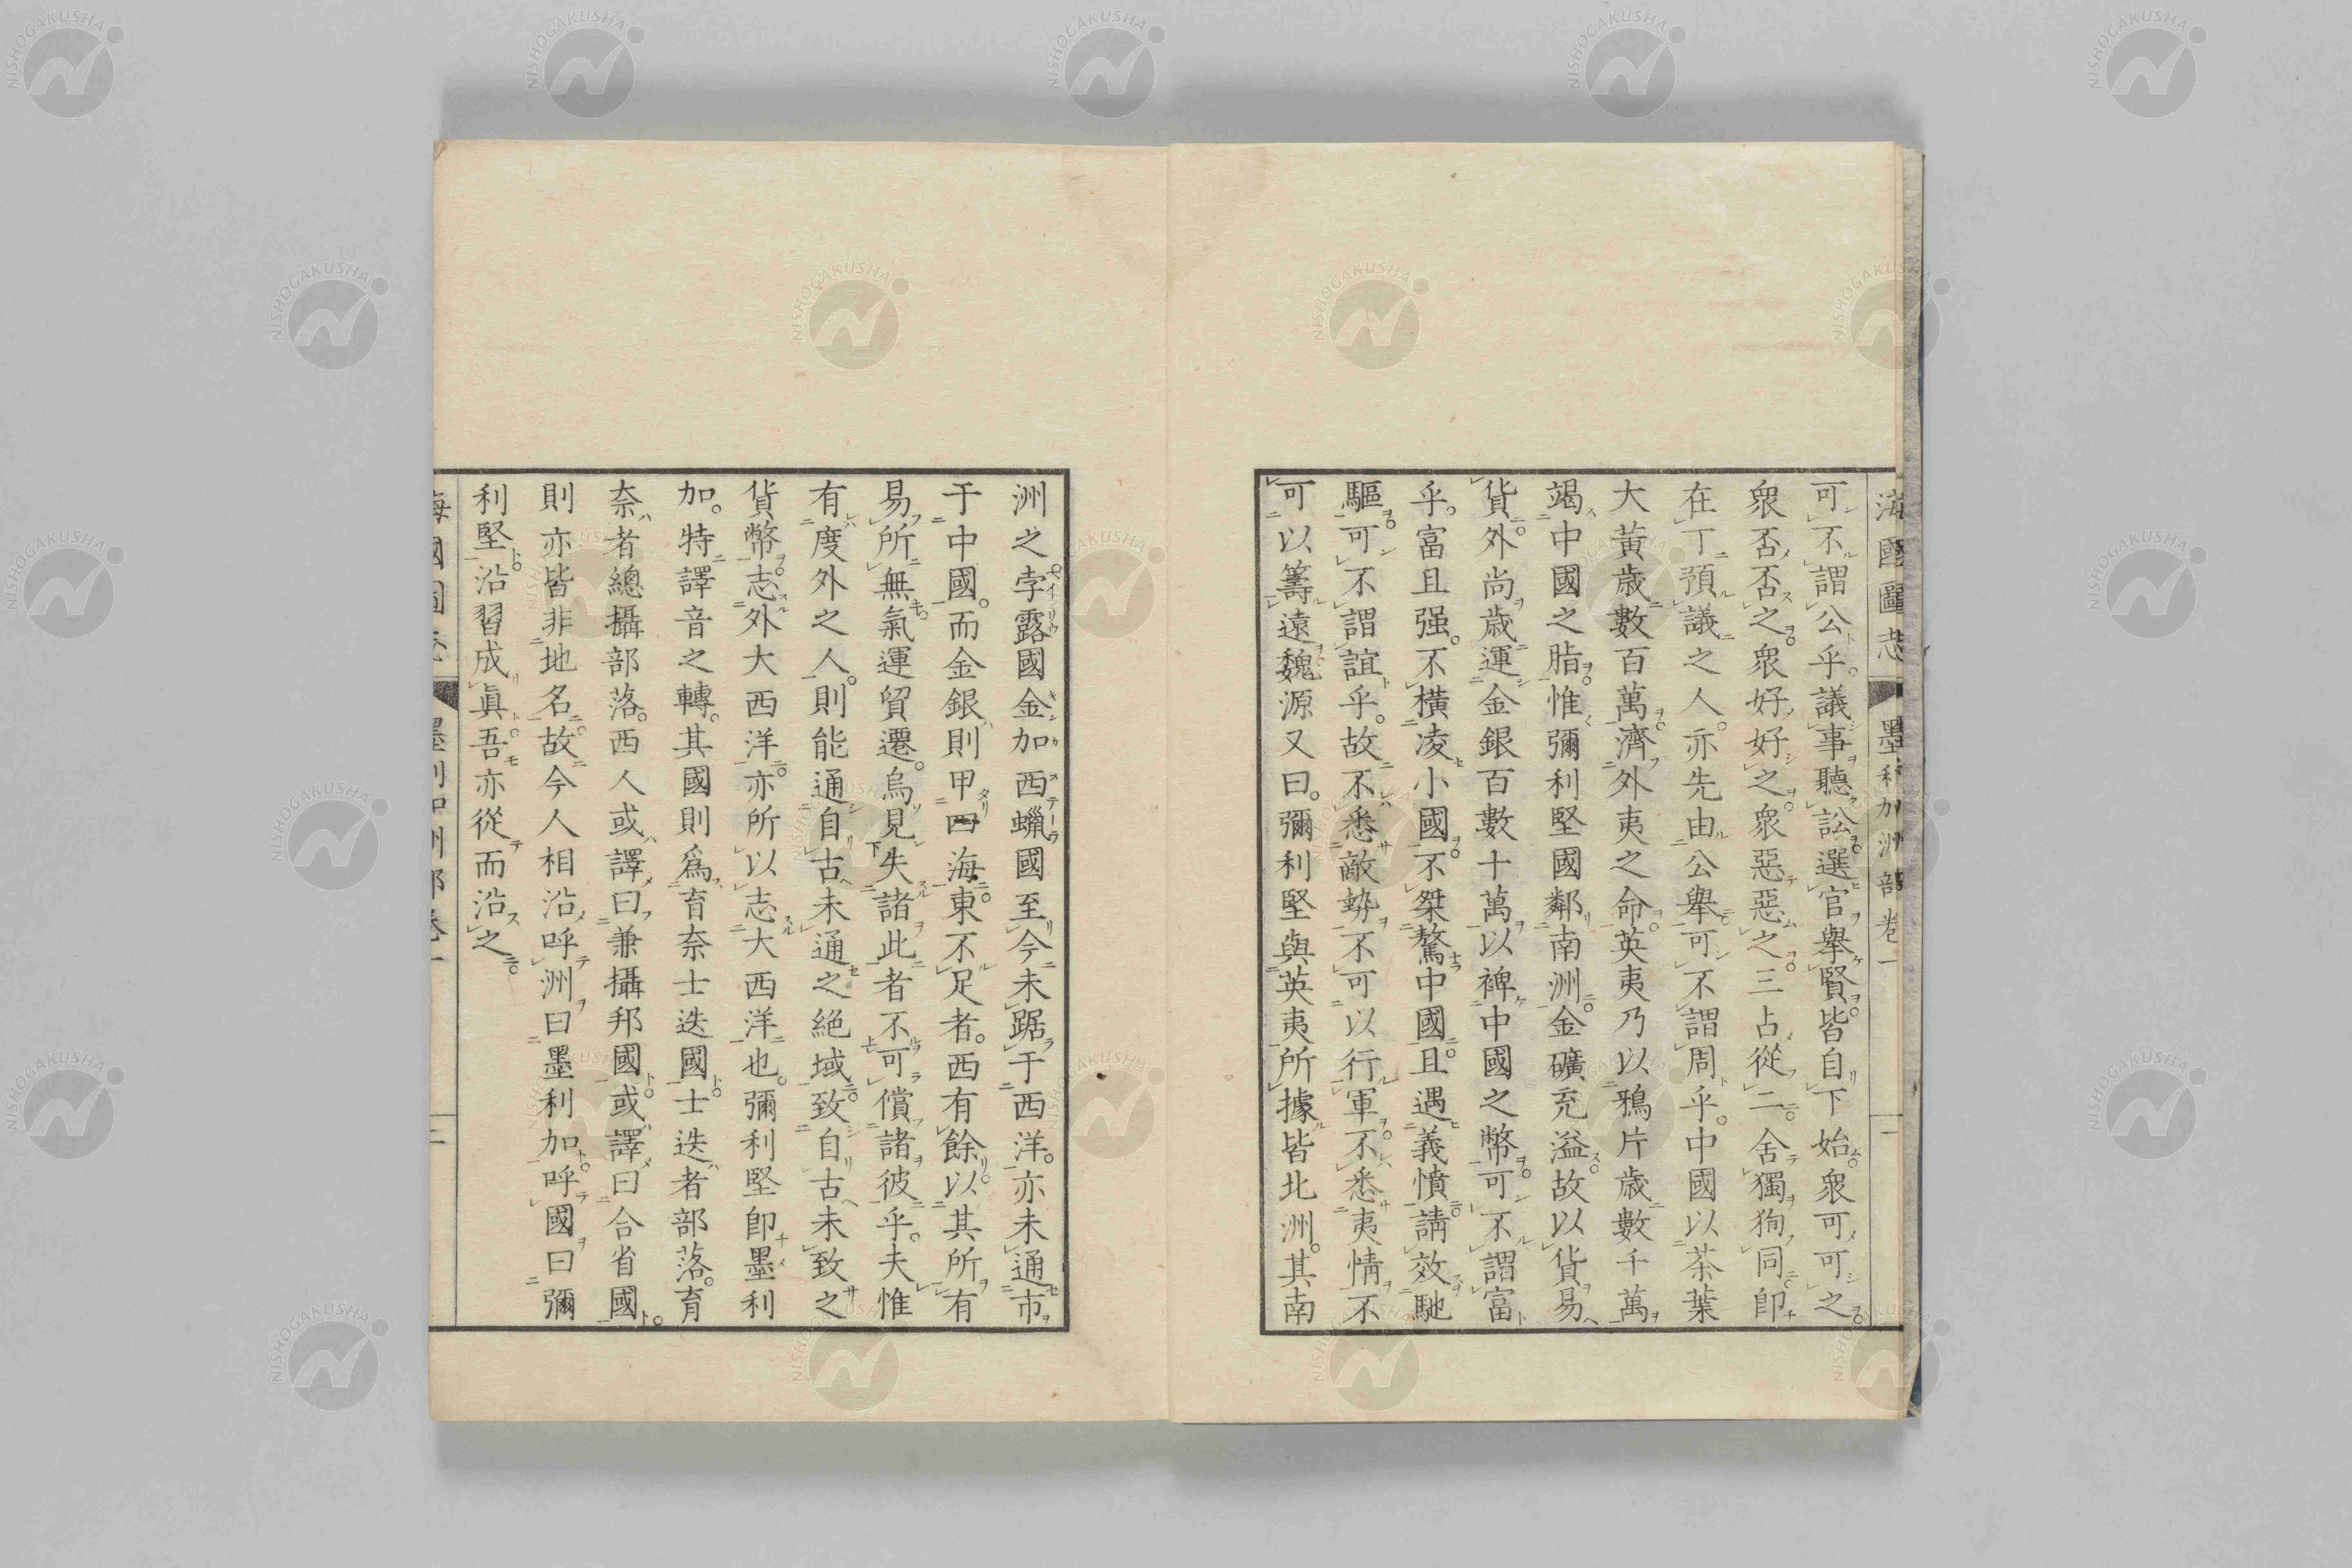 海國圖志 墨利加洲部卷一 一
可不謂公乎。議事聽訟選官舉賢。皆自下始。衆可可之。
衆否否之。衆好好之。衆惡惡之。三占從二。舍獨狥同。卽
在丁預議之人。亦先由公舉。可不謂周乎。中國以茶葉
大黃歳數百萬。濟外夷之命。英夷乃以鴉片歳數千萬
竭中國之脂。惟彌利堅國鄰南洲。金礦充溢。故以貨易
貨外。尚歳運金銀百數十萬。以裨中國之幣。可不謂富
乎。富且强。不橫凌小國。不桀驁中國。且遇義憤。請效馳
驅。可不謂誼乎。故不悉敵勢。不可以行軍。不悉夷情。不
可以籌遠。魏源又曰。彌利堅與英夷所據皆北洲。其南
洲之孛露國金加西蠟國至今未踞于西洋。亦未通市
于中國。而金銀則甲四海。東不足者。西有餘。以其所有
易所無。氣運貿遷。烏見失諸此者不可償諸彼乎。夫惟
有度外之人。則能通自古未通之絕域。致自古未致之
貨幣。志外大西洋。亦所以志大西洋也。彌利堅卽墨利
加。特譯音之轉。其國則爲育奈士迭國。士迭者部落。育
奈者總攝部落。西人或譯曰兼攝邦國。或譯曰合省國。
則亦皆非地名。故今人相沿呼洲曰墨利加。呼國曰彌
利堅。沿習成眞。吾亦從而沿之。
海國圖志 墨利加洲部卷一 二